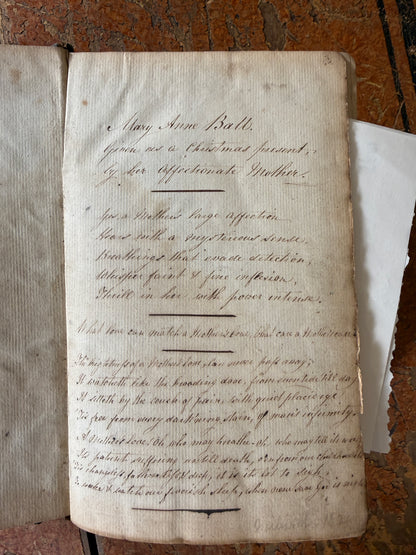 Mary Anne Ball.
Given as a Christmas present,
by her affectionate Mother.
Yes a Mothers large affection
Hears with a mysterious sense,
Breathings that evade detection,
Whisper faint & fine inflexion,
Thrill in her with power intense.
What love can match a Mothers love, What care a Mothers care
The brightness of a Mothers love, can never pass away;
It watcheth like the brooding dove, from even tide till day
It sitteth by the couch of pain, with quiet placid eye
'Tis free from every darkning stain, of man's infirmity.
A Mothers love, Oh who may breathe, oh, who may tell its
Its patient suffering until death, from our
changeless, it is its lot to
To wake & watch our feverish sleep, when none save God is nigh